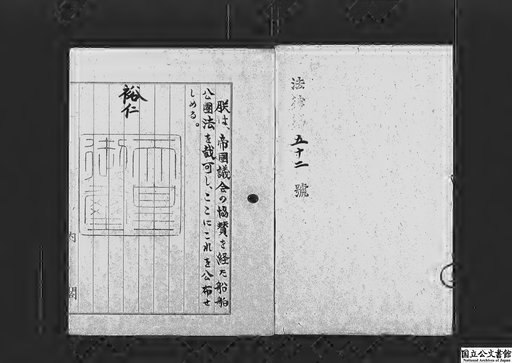 法律第五十二號
朕は、帝國議会の協賛を経た船舶
公團法を裁可し、ここにこれを公布せ
しめる。
裕仁
天皇御璽
内閣
国立公文書館
National Archives of Japan